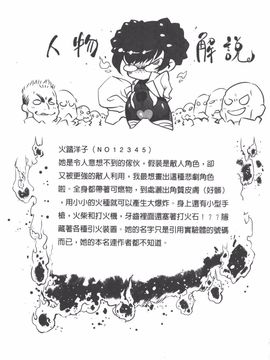 人物解說
火蹈洋子(NO12345)
她是令人意想不到的傢伙，假裝是敵人角色，卻
又被更強的敵人利用，我最想畫出這種悲劇角色
啦。全身都帶著可燃物，到處漏出角質皮膚（好髒）
，用小小的火種就可以產生大爆炸。身上還有小型手
槍，火柴和打火機，牙齒裡面還塞著打火石！？？隱
藏著各種引火裝置。她的名字只是引用實驗體的號碼
而已，她的本名連作者都不知道。